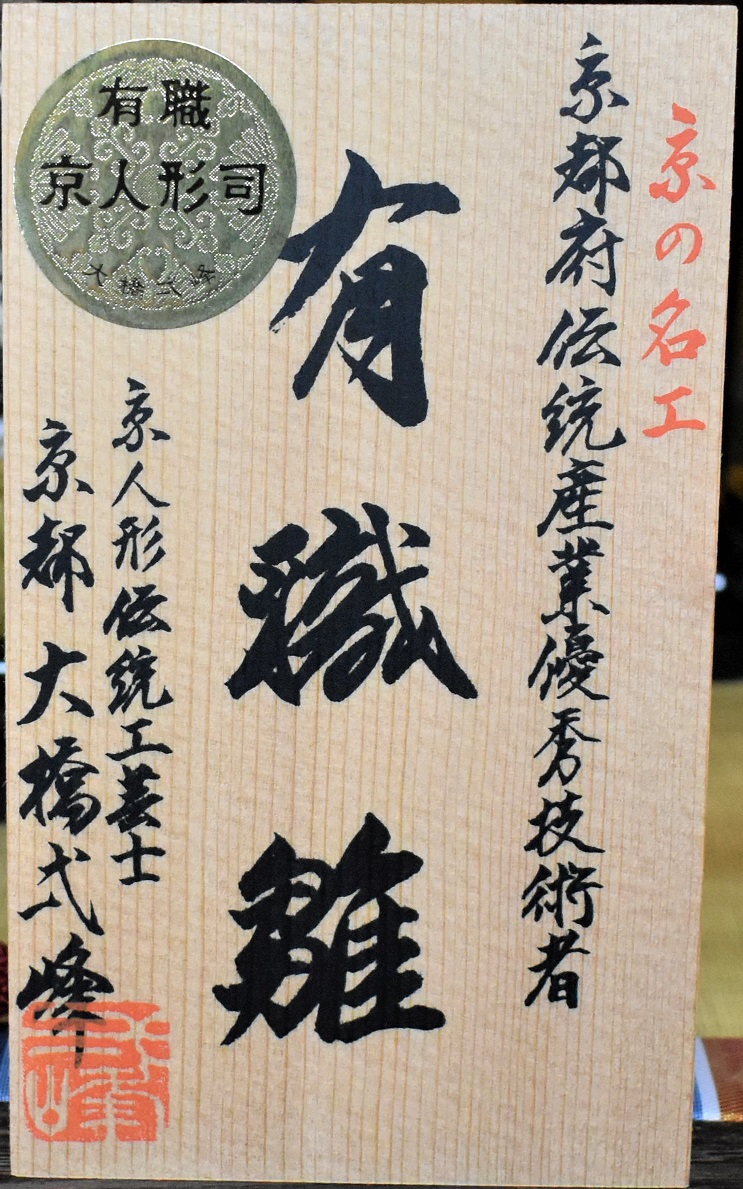 京の名工
京都府伝統産業優秀技術者
有職雛
京人形伝統工芸士
京都 大橋弌峰
有職
京人形司
大橋弌峰